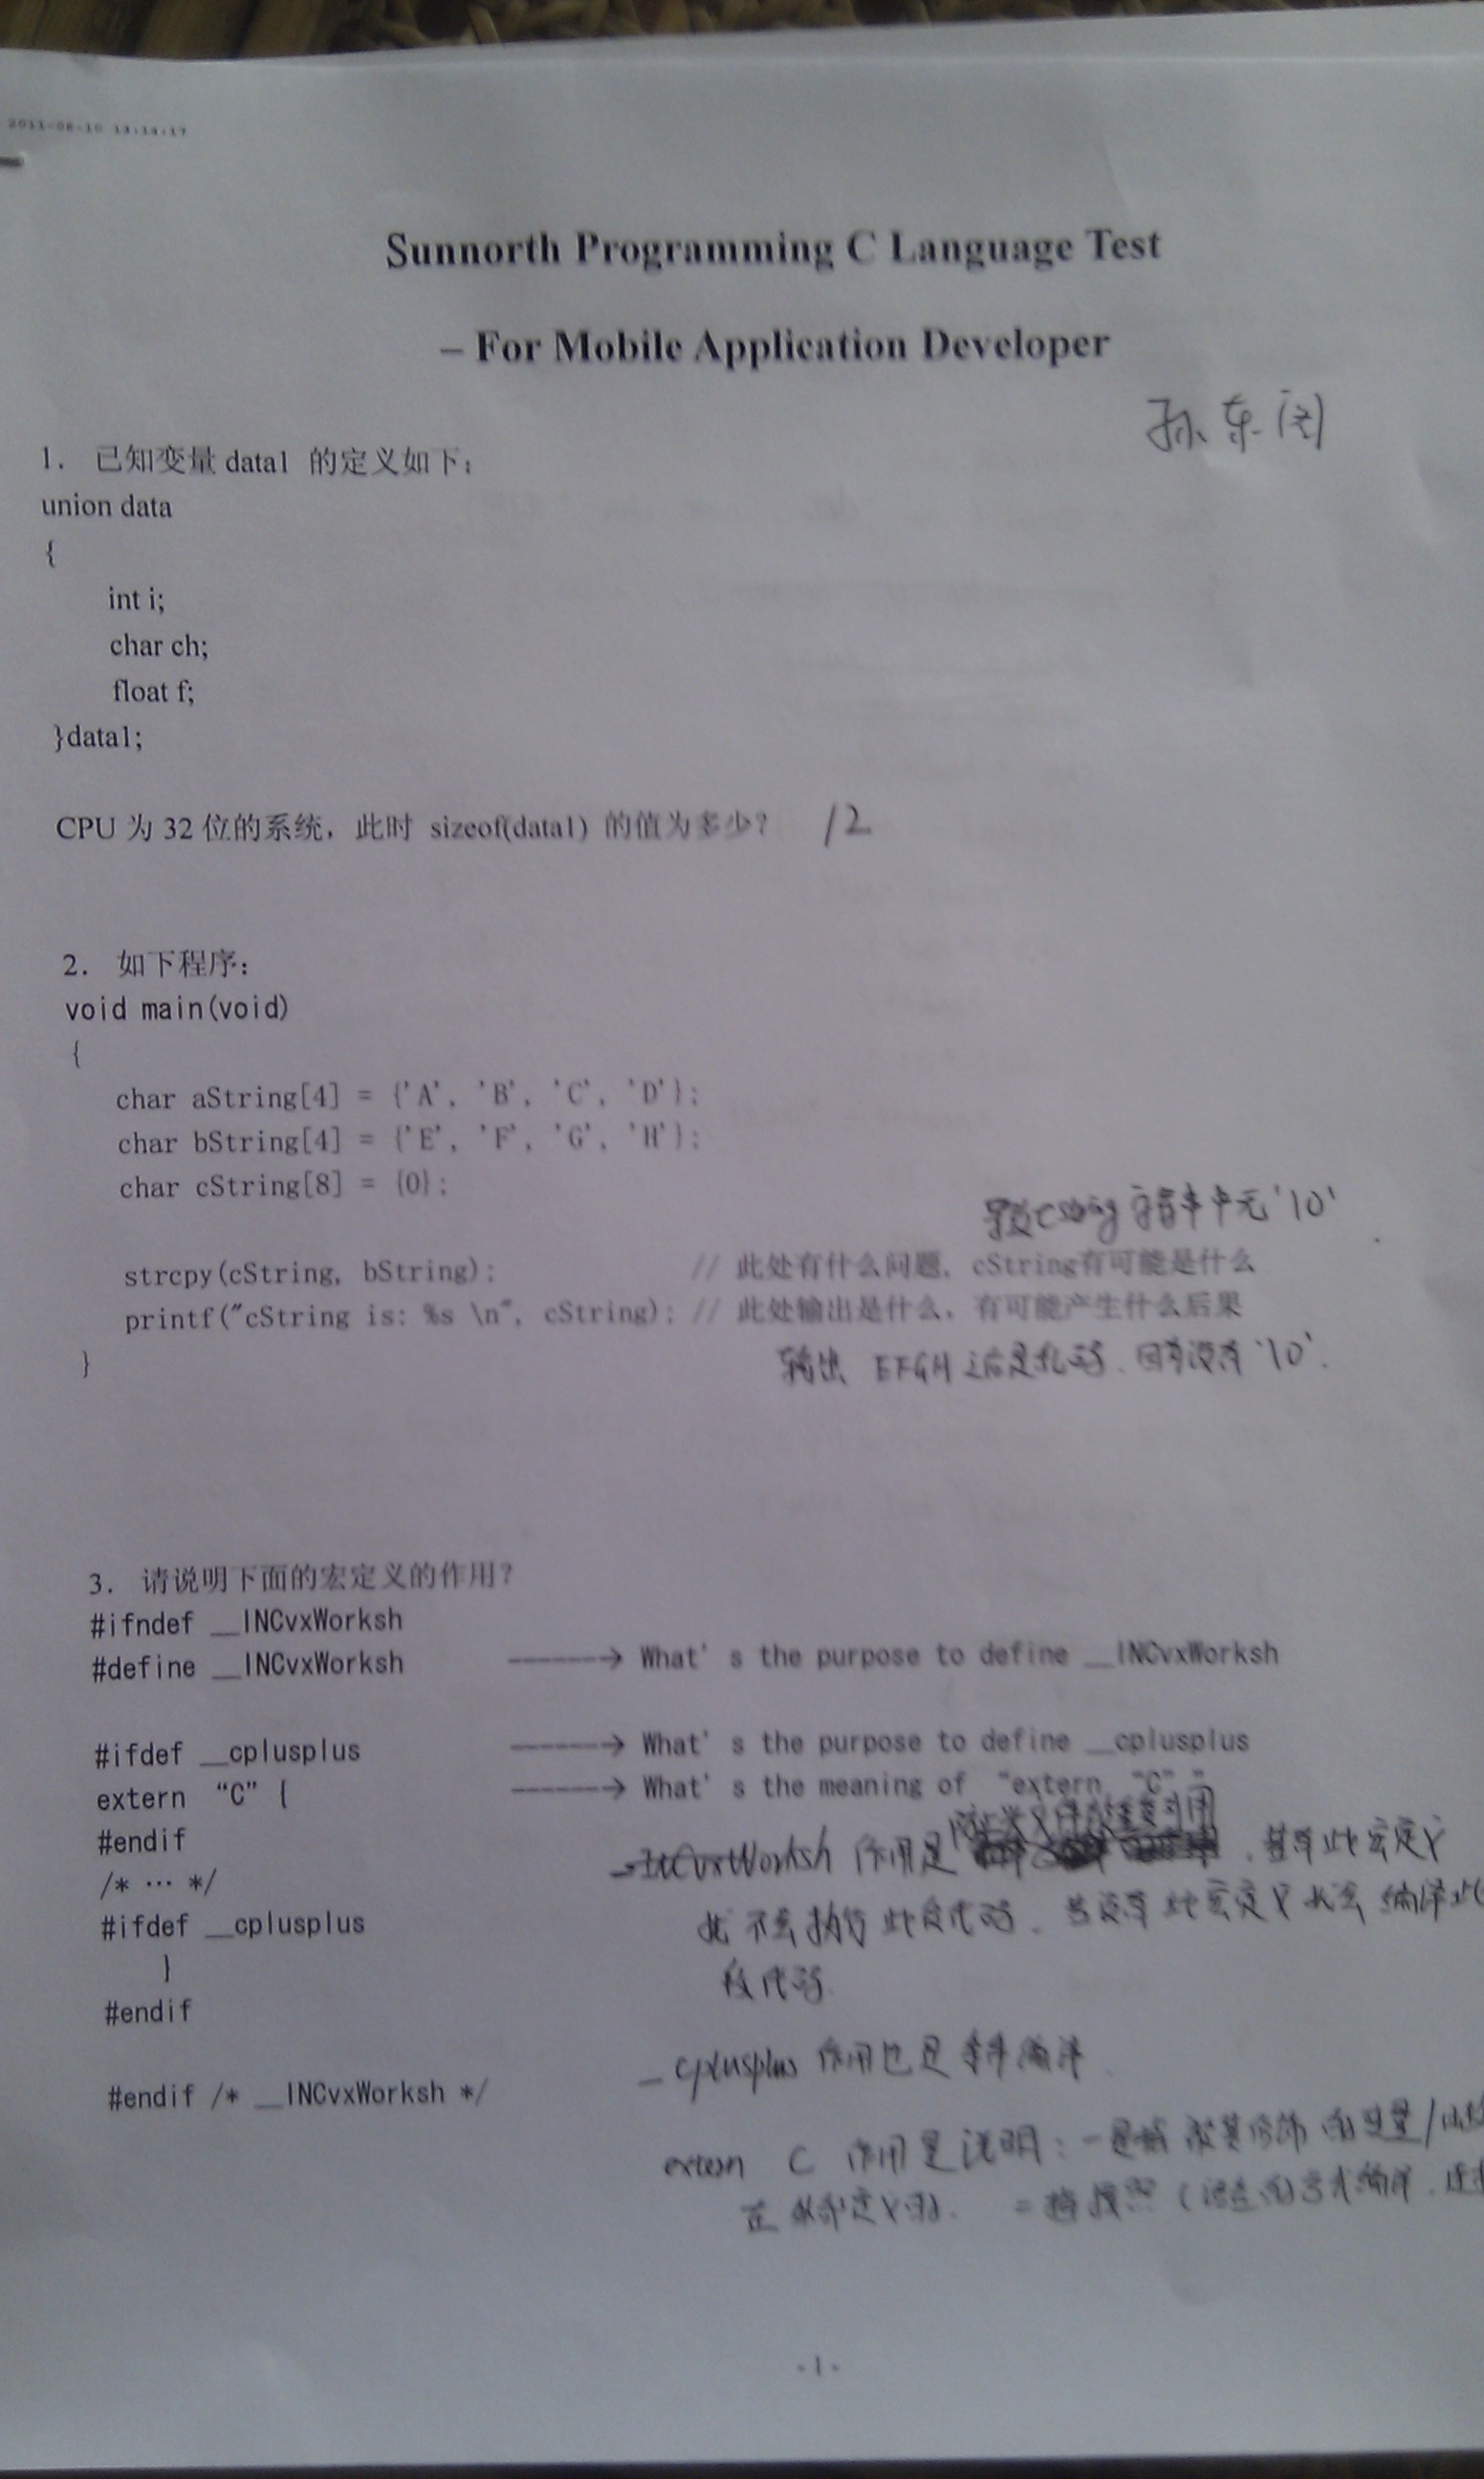 2011-06-10 13:14:17
Sunnorth Programming C Language Test
– For Mobile Application Developer
孙东
1. 已知变量 data1 的定义如下：
union data
{
int i;
char ch;
float f;
}data1;
CPU 为 32 位的系统，此时 sizeof(data1) 的值为多少? 12
2. 如下程序：
void main(void)
{
char aString[4] = {'A', 'B', 'C', 'D'};
char bString[4] = {'E', 'F', 'G', 'H'};
char cString[8] = {0};
cString 字符串中无'\0'
strcpy(cString, bString); // 此处有什么问题, cString有可能是什么
printf("cString is: %s \n", cString); // 此处输出是什么, 有可能产生什么后果
}
输出 EFGH 之后是乱码. 因为没有'\0'.
3. 请说明下面的宏定义的作用?
#ifndef __INCvxWorksh
#define __INCvxWorksh ------→ What's the purpose to define __INCvxWorksh
#ifdef __cplusplus ------→ What's the purpose to define __cplusplus
extern "C" { ------→ What's the meaning of "extern "C""
#endif
/* … */
#ifdef __cplusplus
}
#endif
#endif /* __INCvxWorksh */
_INCvxWorksh 作用是防止头文件被重复引用. 若有此宏定义
就不会执行此段代码. 若没有此宏定义就会编译此
段代码.
_cplusplus 作用也是条件编译.
extern C 作用是说明: 一是 被其修饰的变量/
在外部定义的. 二 按照C语言的方式编译.
- 1 -